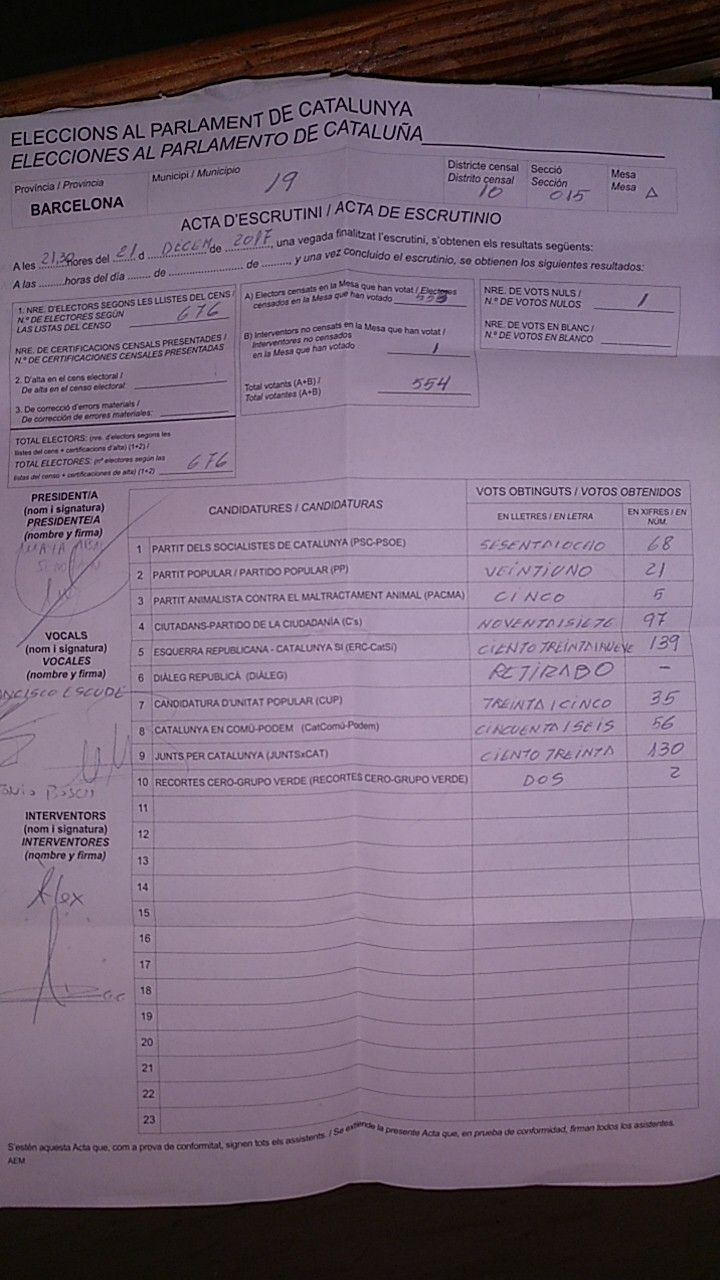 ELECCIONS AL PARLAMENT DE CATALUNYA
ELECCIONES AL PARLAMENTO DE CATALUÑA
Província / Provincia
BARCELONA
Municipi / Municipio
19
Districte censal
Distrito censal
10
Secció
Sección
015
Mesa
Mesa
ACTA D'ESCRUTINI / ACTA DE ESCRUTINIO
A les 21,30 hores del 21 d DECEM de 2017, una vegada finalitzat l'escrutini, s'obtenen els resultats següents:
A las ........horas del día ....... de ....................... de ........, y una vez concluido el escrutinio, se obtienen los siguientes resultados:
1. NRE. D'ELECTORS SEGONS LES LLISTES DEL CENS /
N.º DE ELECTORES SEGÚN
LAS LISTAS DEL CENSO 676
NRE. DE CERTIFICACIONS CENSALS PRESENTADES /
N.º DE CERTIFICACIONES CENSALES PRESENTADAS
2. D'alta en el cens electoral /
De alta en el censo electoral:
3. De correcció d'errors materials /
De corrección de errores materiales:
TOTAL ELECTORS: (nre. d'electors segons les
llistes del cens + certificacions d'alta) (1+2) /
TOTAL ELECTORES: (nº electores según las
listas del censo + certificaciones de alta) (1+2) 676
A) Electors censats en la Mesa que han votat / Electores
censados en la Mesa que han votado 553
B) Interventors no censats en la Mesa que han votat /
Interventores no censados
en la Mesa que han votado 1
Total votants (A+B) /
Total votantes (A+B) 554
NRE. DE VOTS NULS /
N.º DE VOTOS NULOS 1
NRE. DE VOTS EN BLANC /
N.º DE VOTOS EN BLANCO
PRESIDENT/A
(nom i signatura)
PRESIDENTE/A
(nombre y firma)
VOCALS
(nom i signatura)
VOCALES
(nombre y firma)
NCISCO ESCUDÉ
BOSCH
INTERVENTORS
(nom i signatura)
INTERVENTORES
(nombre y firma)
Alex
CANDIDATURES / CANDIDATURAS
VOTS OBTINGUTS / VOTOS OBTENIDOS
EN LLETRES / EN LETRA
EN XIFRES / EN NÚM.
1 PARTIT DELS SOCIALISTES DE CATALUNYA (PSC-PSOE) SESENTAIOCHO 68
2 PARTIT POPULAR / PARTIDO POPULAR (PP) VEINTIUNO 21
3 PARTIT ANIMALISTA CONTRA EL MALTRACTAMENT ANIMAL (PACMA) CINCO 5
4 CIUTADANS-PARTIDO DE LA CIUDADANÍA (C's) NOVENTAISIETE 97
5 ESQUERRA REPUBLICANA - CATALUNYA SÍ (ERC-CatSí) CIENTO TREINTAINUEVE 139
6 DIÀLEG REPUBLICÀ (DIÀLEG) RETIRADO -
7 CANDIDATURA D'UNITAT POPULAR (CUP) TREINTAICINCO 35
8 CATALUNYA EN COMÚ-PODEM (CatComú-Podem) CINCUENTAISEIS 56
9 JUNTS PER CATALUNYA (JUNTSxCAT) CIENTO TREINTA 130
10 RECORTES CERO-GRUPO VERDE (RECORTES CERO-GRUPO VERDE) DOS 2
11
12
13
14
15
16
17
18
19
20
21
22
23
S'estén aquesta Acta que, com a prova de conformitat, signen tots els assistents. / Se extiende la presente Acta que, en prueba de conformidad, firman todos los asistentes.
AEM